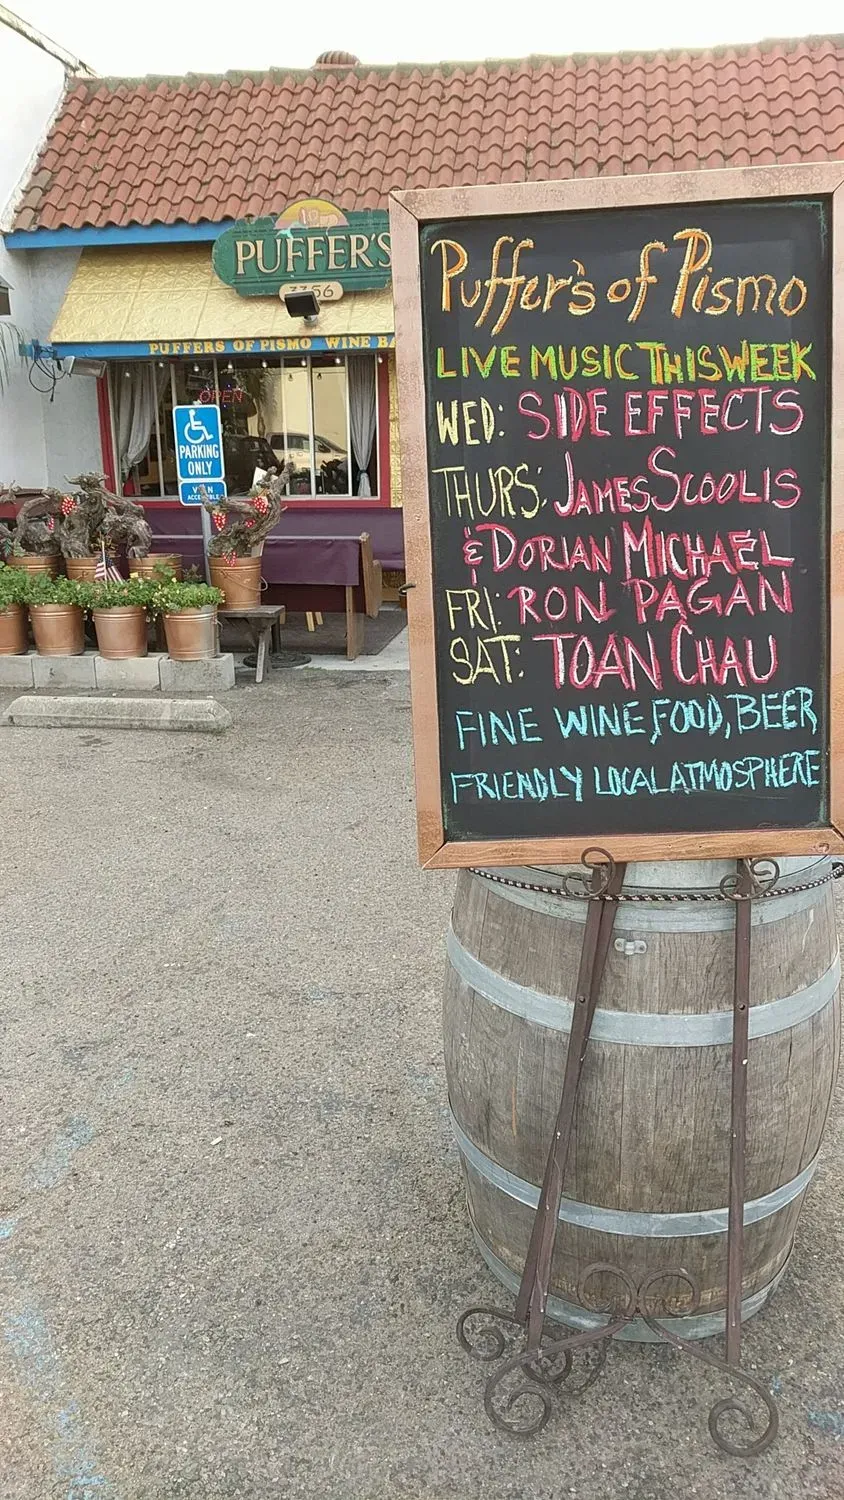 PUFFER'S
3356
PUFFERS OF PISMO WINE BA
OPEN
PARKING
ONLY
VAN
ACCESSIBLE
Puffer's of Pismo
LIVE MUSIC THIS WEEK
WED: SIDE EFFECTS
THURS: JAMES SCOOLIS
& DORIAN MICHAEL
FRI: RON PAGAN
SAT: TOAN CHAU
FINE WINE, FOOD, BEER
FRIENDLY LOCAL ATMOSPHERE